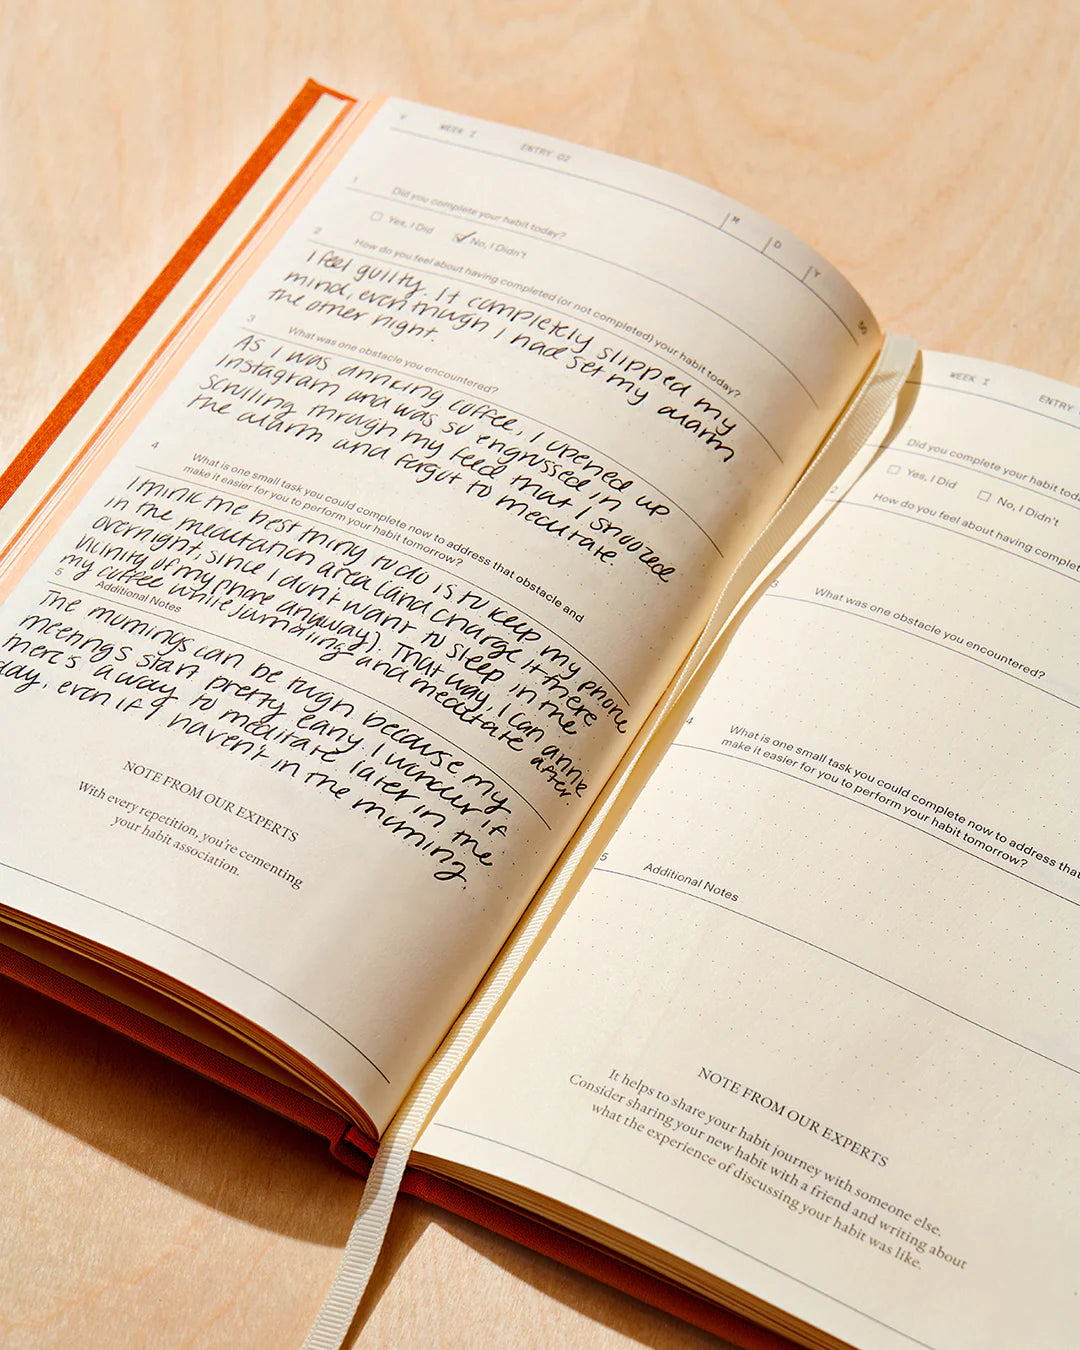 V WEEK I ENTRY 02
M D Y
1 Did you complete your habit today?
Yes, I Did No, I Didn't
2 How do you feel about having completed (or not completed) your habit today?
I feel guilty. It completely slipped my
mind, even though I had set my alarm
the other night.
3 What was one obstacle you encountered?
As I was drinking coffee, I opened up
Instagram and was so engrossed in
scrolling through my feed that I snoozed
the alarm and forgot to meditate
4 What is one small task you could complete now to address that obstacle and
make it easier for you to perform your habit tomorrow?
I think the best thing to do is to keep my phone
in the meditation area (and charge it there
overnight, since I don't want to sleep in the
vicinity of my phone anyway). That way, I can drink
my coffee while journaling and meditate after.
5 Additional Notes
The mornings can be rough because my
meetings start pretty early. I wonder if
there's a way to meditate later in the
day, even if I haven't in the morning.
NOTE FROM OUR EXPERTS
With every repetition, you're cementing
your habit association.
WEEK I ENTRY
Did you complete your habit
Yes, I Did No, I Didn't
2 How do you feel about having
3 What was one obstacle you encountered?
4 What is one small task you could complete now to address that
make it easier for you to perform your habit tomorrow?
5 Additional Notes
NOTE FROM OUR EXPERTS
It helps to share your habit journey with someone else.
Consider sharing your new habit with a friend and writing about
what the experience of discussing your habit was like.